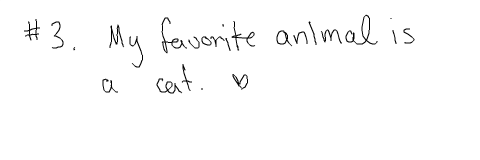 #3. My favorite animal is
a cat. ♡